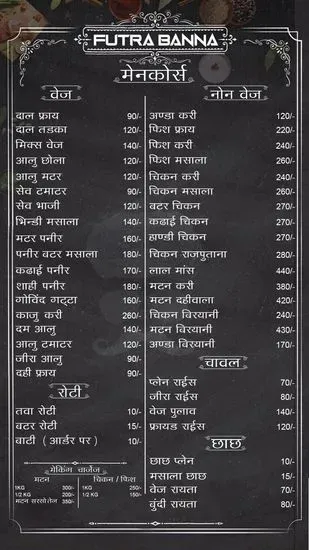 FUTRA BANNA
मेनकोर्स
वेज
दाल फ्राय 90/-
दाल तडका 120/-
मिक्स वेज 140/-
आलु छोला 120/-
आलु मटर 120/-
सेव टमाटर 90/-
सेव भाजी 120/-
भिन्डी मसाला 140/-
मटर पनीर 160/-
पनीर बटर मसाला 180/-
कढाई पनीर 170/-
शाही पनीर 180/-
गोविंद गट्टा 160/-
काजु करी 260/-
दम आलु 140/-
आलु टमाटर 120/-
जीरा आलु 90/-
दही फ्राय 90/-
रोटी
तवा रोटी 10/-
बटर रोटी 15/-
बाटी ( आर्डर पर ) 10/-
मेकिंग चार्जेज
मटन
1KG 300/-
1/2 KG 200/-
मटन सरसो तेज 350/-
चिकन / फिश
1KG 250/-
1/2 KG 150/-
नोन वेज
अण्डा करी 120/-
फिश फ्राय 220/-
फिश करी 240/-
फिश मसाला 260/-
चिकन करी 240/-
चिकन मसाला 260/-
बटर चिकन 270/-
कढाई चिकन 270/-
हाण्डी चिकन 270/-
चिकन राजपुताना 280/-
लाल मांस 440/-
मटन करी 380/-
मटन दहीवाला 420/-
चिकन विरयानी 240/-
मटन विरयानी 430/-
अण्डा विरयानी 170/-
चावल
प्लेन राईस 70/-
जीरा राईस 80/-
वेज पुलाव 140/-
फ्रायड राईस 120/-
छाछ
छाछ प्लेन 10/-
मसाला छाछ 15/-
वेज रायता 70/-
बुंदी रायता 80/-